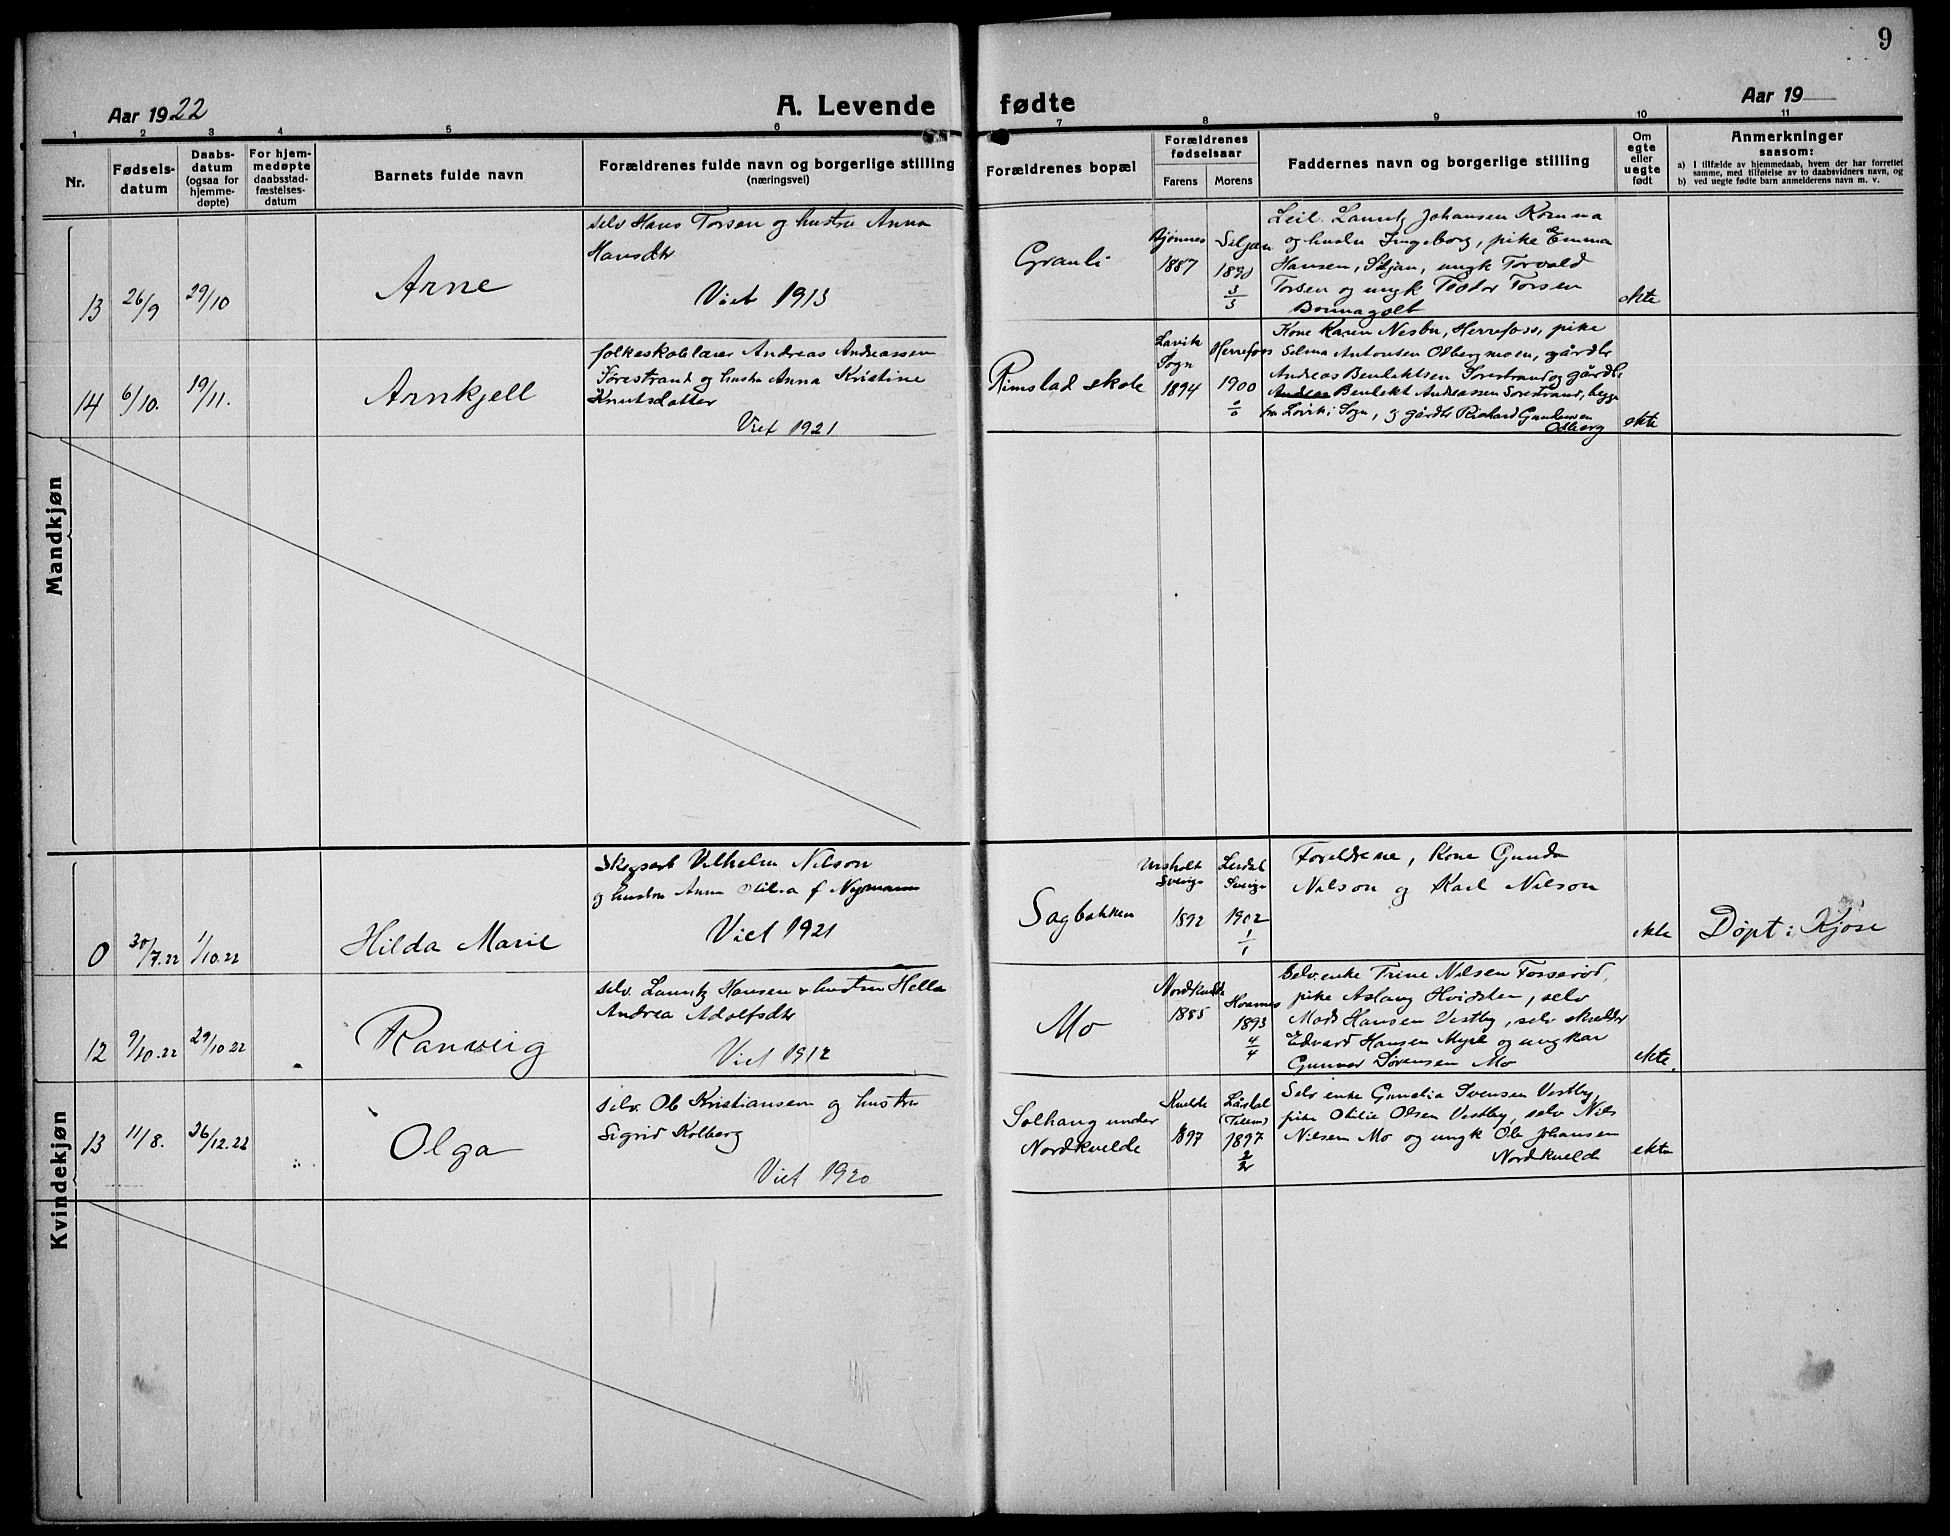 9
Aar 1922
A. Levende fødte
Aar 19
1 2 3 4 5 6 7 8 9 10 11
Nr.
Fødsels-
datum
Daabs-
datum
(ogsaa for
hjemme-
døpte)
For hjem-
medøpte
daabsstad-
fæstelses-
datum
Barnets fulde navn
Forældrenes fulde navn og borgerlige stilling
(næringsvei)
Forældrenes bopæl
Forældrenes
fødselsaar
Farens
Morens
Faddernes navn og borgerlige stilling
Om
egte
eller
uegte
født
Anmerkninger
saasom:
a) I tilfælde av hjemmedaab, hvem der har forrettet
samme, med tilføielse av to daabsvidners navn, og
b) ved uegte fødte barn anmelderens navn m. v.
Mandkjøn
13
26/9
29/10
Arne
selv Hans Torsen og hustru Anna
Hansdtr
Viet 1913
Granli
Bjønnes
1887
Siljan
1890
3/3
Leil. Lauritz Johansen Romma
og hustru Ingeborg, pike Emma
Hansen, Siljan, ungk Torvald
Torsen og ungk Teodor Torsen
ekte
14
6/10.
19/11.
Arnkjell
folkeskolelærer Andreas Andreassen
Sørestrand og hustru Anna Kristine
Knutsdatter
Viet 1921
Rimstad skole
Lavik
Sogn
1894
Herrefoss
1900
Kone Karen Nesbu, Herrefoss, pike
Selma Antonsen Odbergmoen, gårdbr
Andreas Bendektsen Sørestrand og gårdbr
Andreas Bendekt Andreassen Sørestrand, begge
fra Lavik i Sogn, og gårdbr Richard Gundersen
Odberg
ekte
Kvindekjøn
0
30/7.22
1/10.22
Hilda Marie
Vilhelm Nilson
og hustru Anna Otilia f Nymann
Viet 1921
Sagbakken
Sverige
1892
Lerdal
Sverige
1902
1/1
Foreldrene, Kone Gunda
Nilson og Karl Nilson
ekte
Døpt i Kjose
12
9/10.22
29/10.22
Ranveig
selv. Lauritz Hansen & hustru Hella
Andrea Adolfsdtr
Viet 1912
Mo
Nordkvelde
1885
Hvarnes
1893
4/4
Selv. enke Trine Nilsen Fosserød,
pike Aslaug Hvidsten, selv
Mads Hansen Vestby, selv skredder
Edvard Hansen Myre og ungkar
Gunnar Sørensen Mo
ekte.
13
11/8.
26/12.22
Olga
selv. Ole Kristiansen og hustru
Sigrid Kolberg
Viet 1920
Solhaug under
Nordkvelde
Kvelde
1897
Lårdal
(Telem)
1897
2/2
Selv enke Gunelia Svensen Vestby,
pike Otilie Olsen Vestby, selv Nils
Nilsen Mo og ungk Ole Johansen
Nordkvelde
ekte